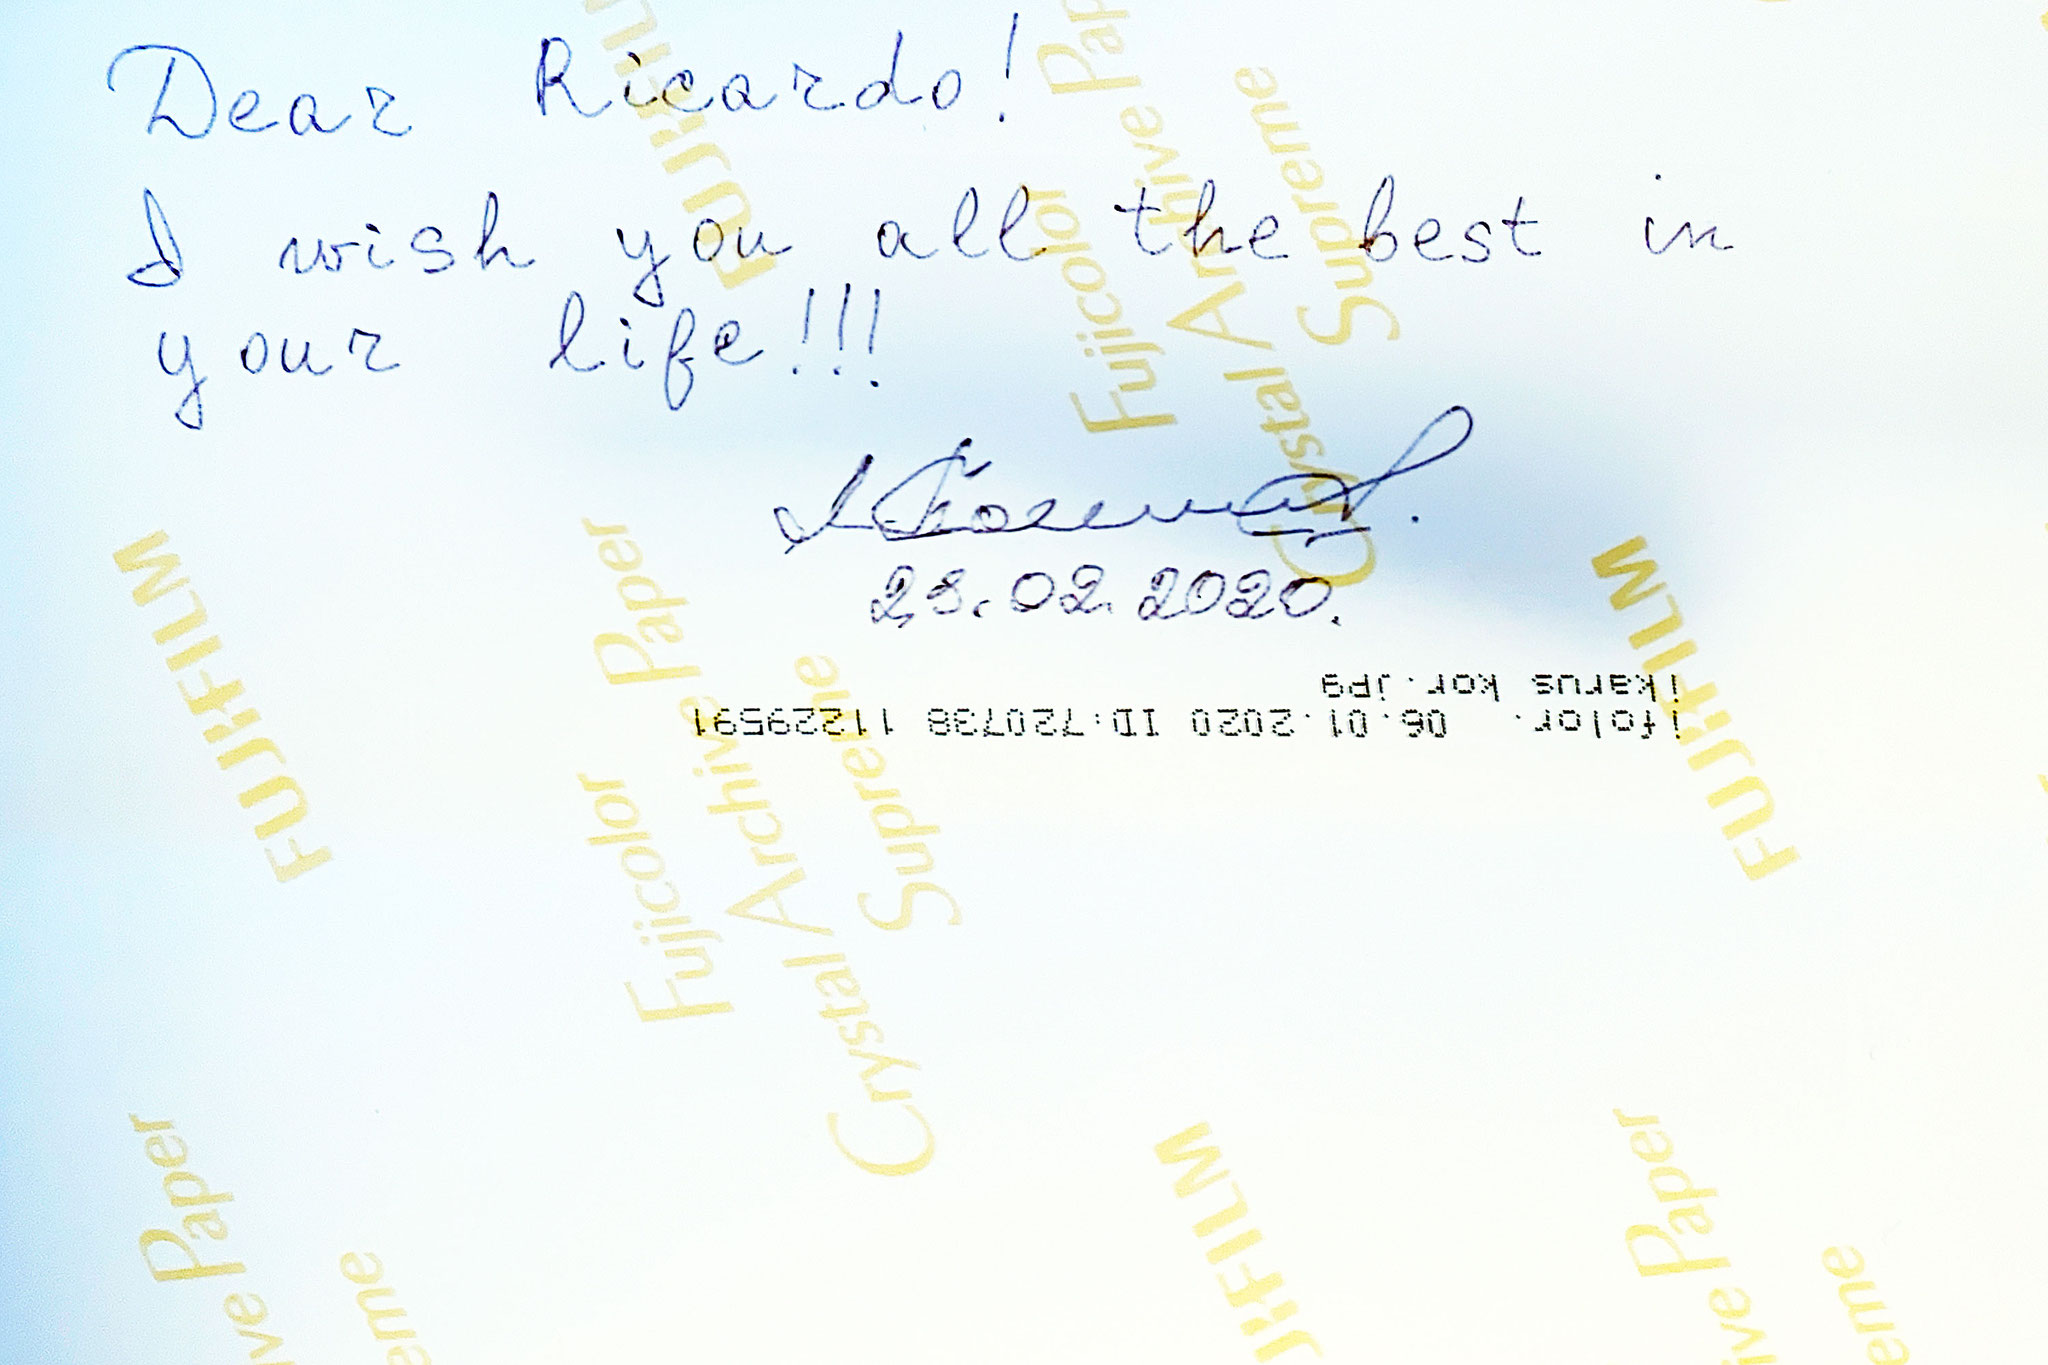 Dear Ricardo!
I wish you all the best in
your life!!!
02.2020.
ifolor. 06.01.2020 ID:720738 11229591
ikarus kor.jpg
FUJIFILM
Fujicolor
Crystal Archive Paper
Supreme
FUJIFILM
Fujicolor
Crystal Archive Paper
Supreme
FUJIFILM
ive Paper
eme
JIFILM
ive Paper
eme